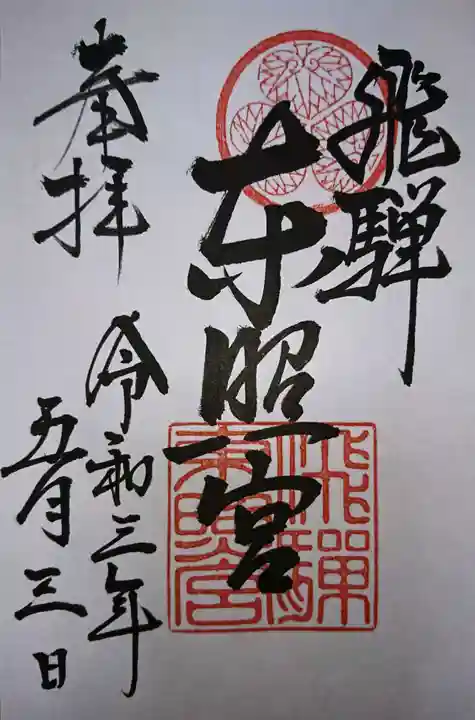 飛騨
東照宮
飛騨
東照宮
奉拝
令和三年
五月三日